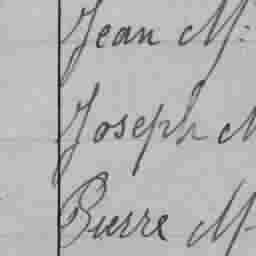 Jean M
Joseph M
Pierre M